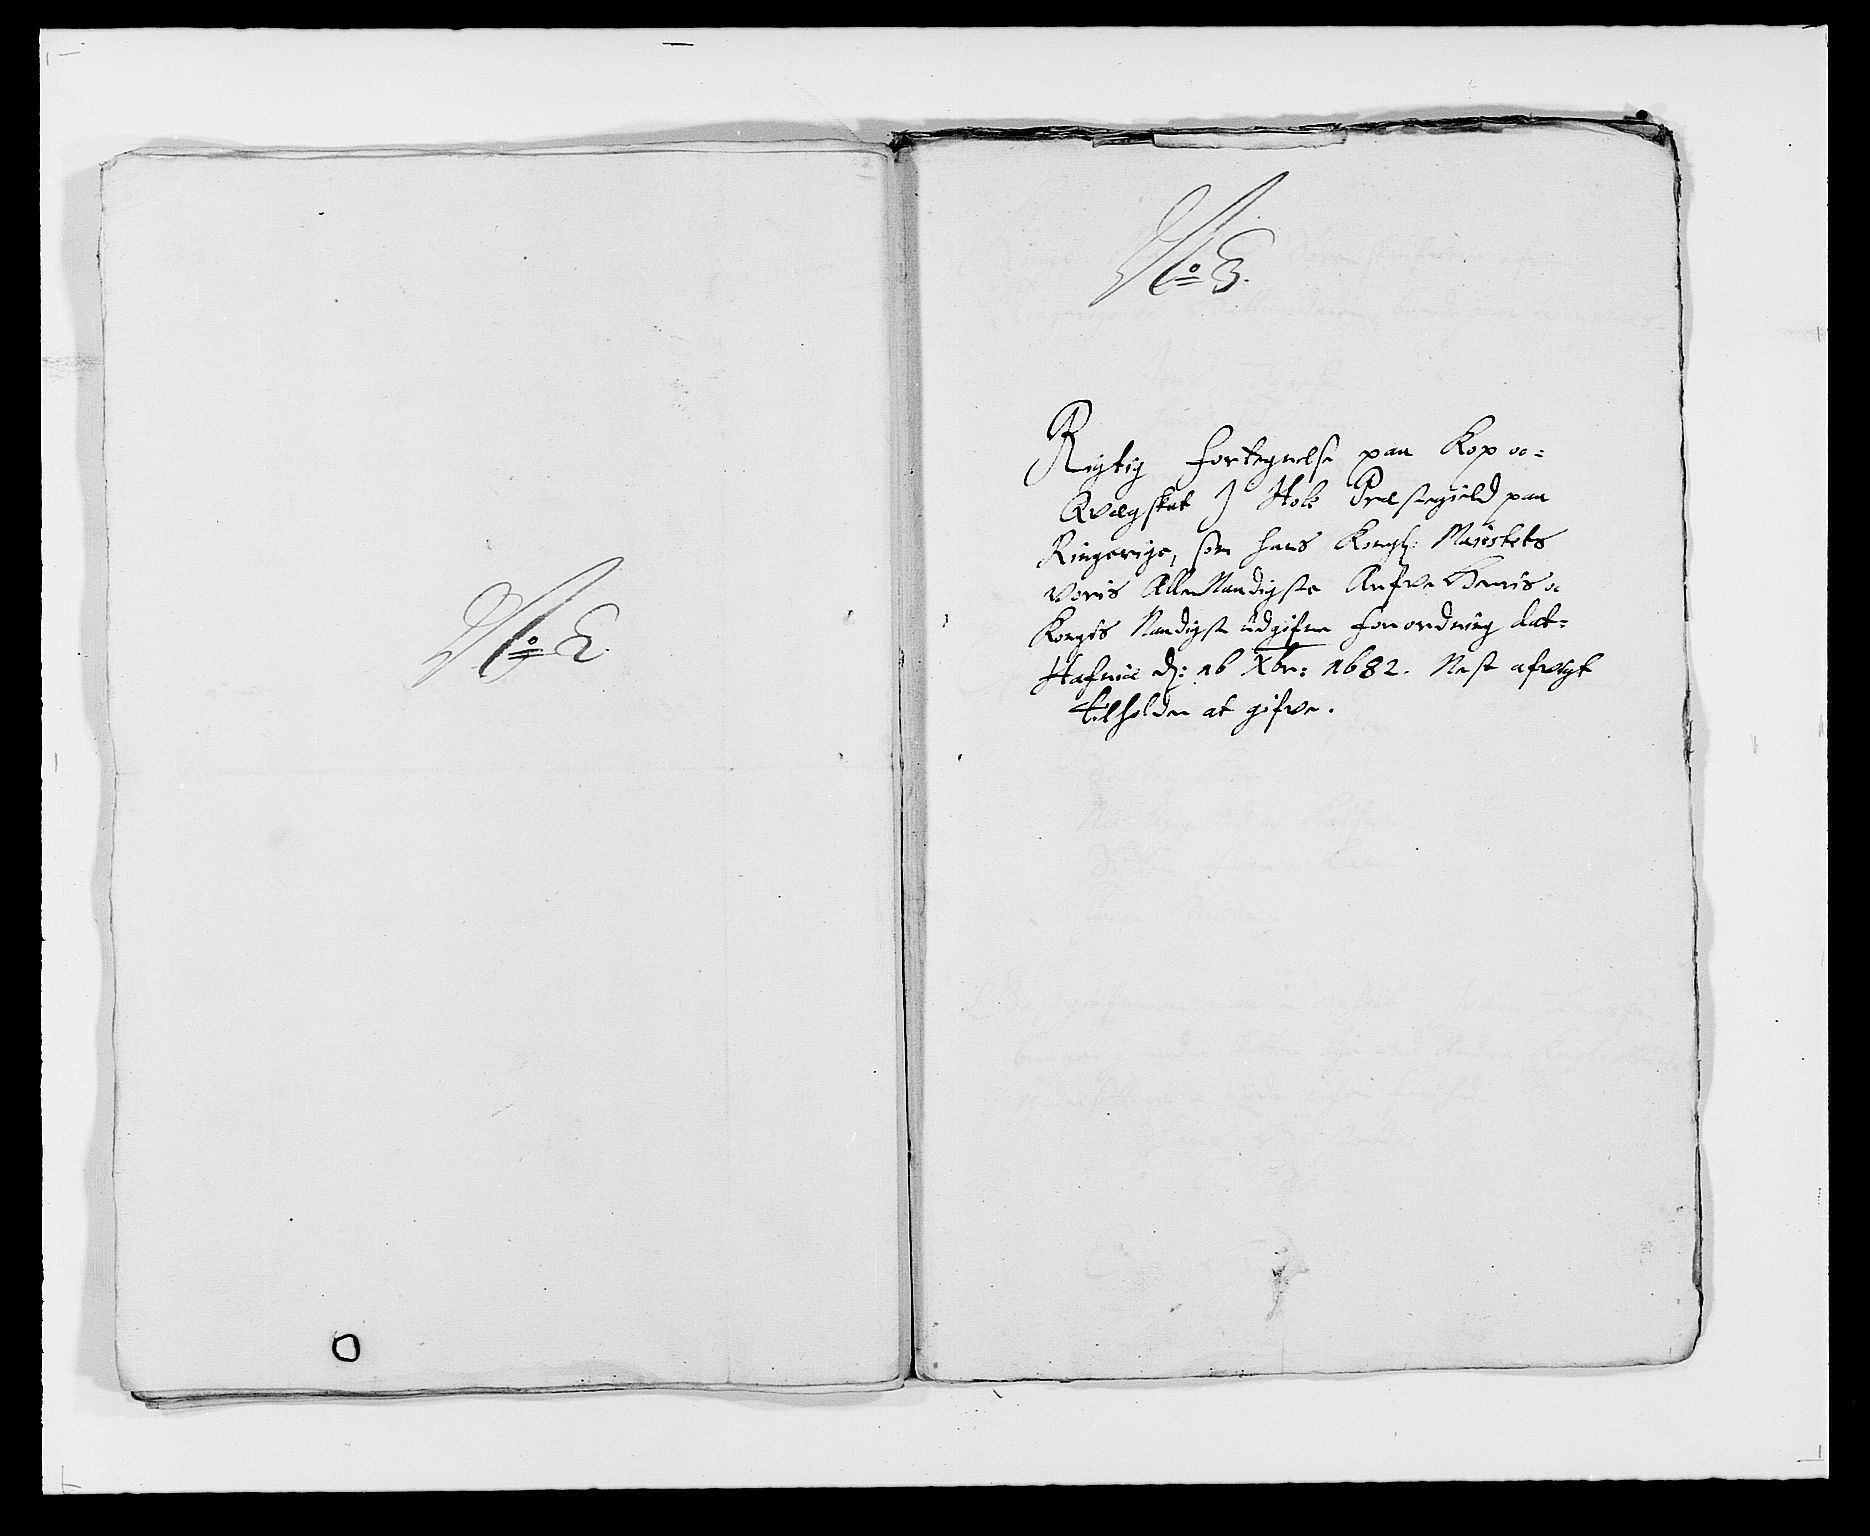 No 2.
No 3.
Rigtig Fortegnelse paa Kop oc=
Qvægskat J Hole Præstegield paa
Ringerige, som hans Kongl: Mayestets
voris Aller Naadigste Arfve Herris oc
Kongis Naadigst udgifne Forordning dat=
Hafniæ d: 16 Xbr: 1682. Nest afvigt
tilholder at gifve.